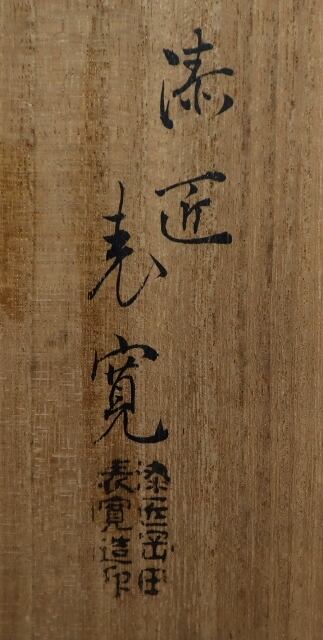 漆匠
表寛
漆匠岡田
表寛造印